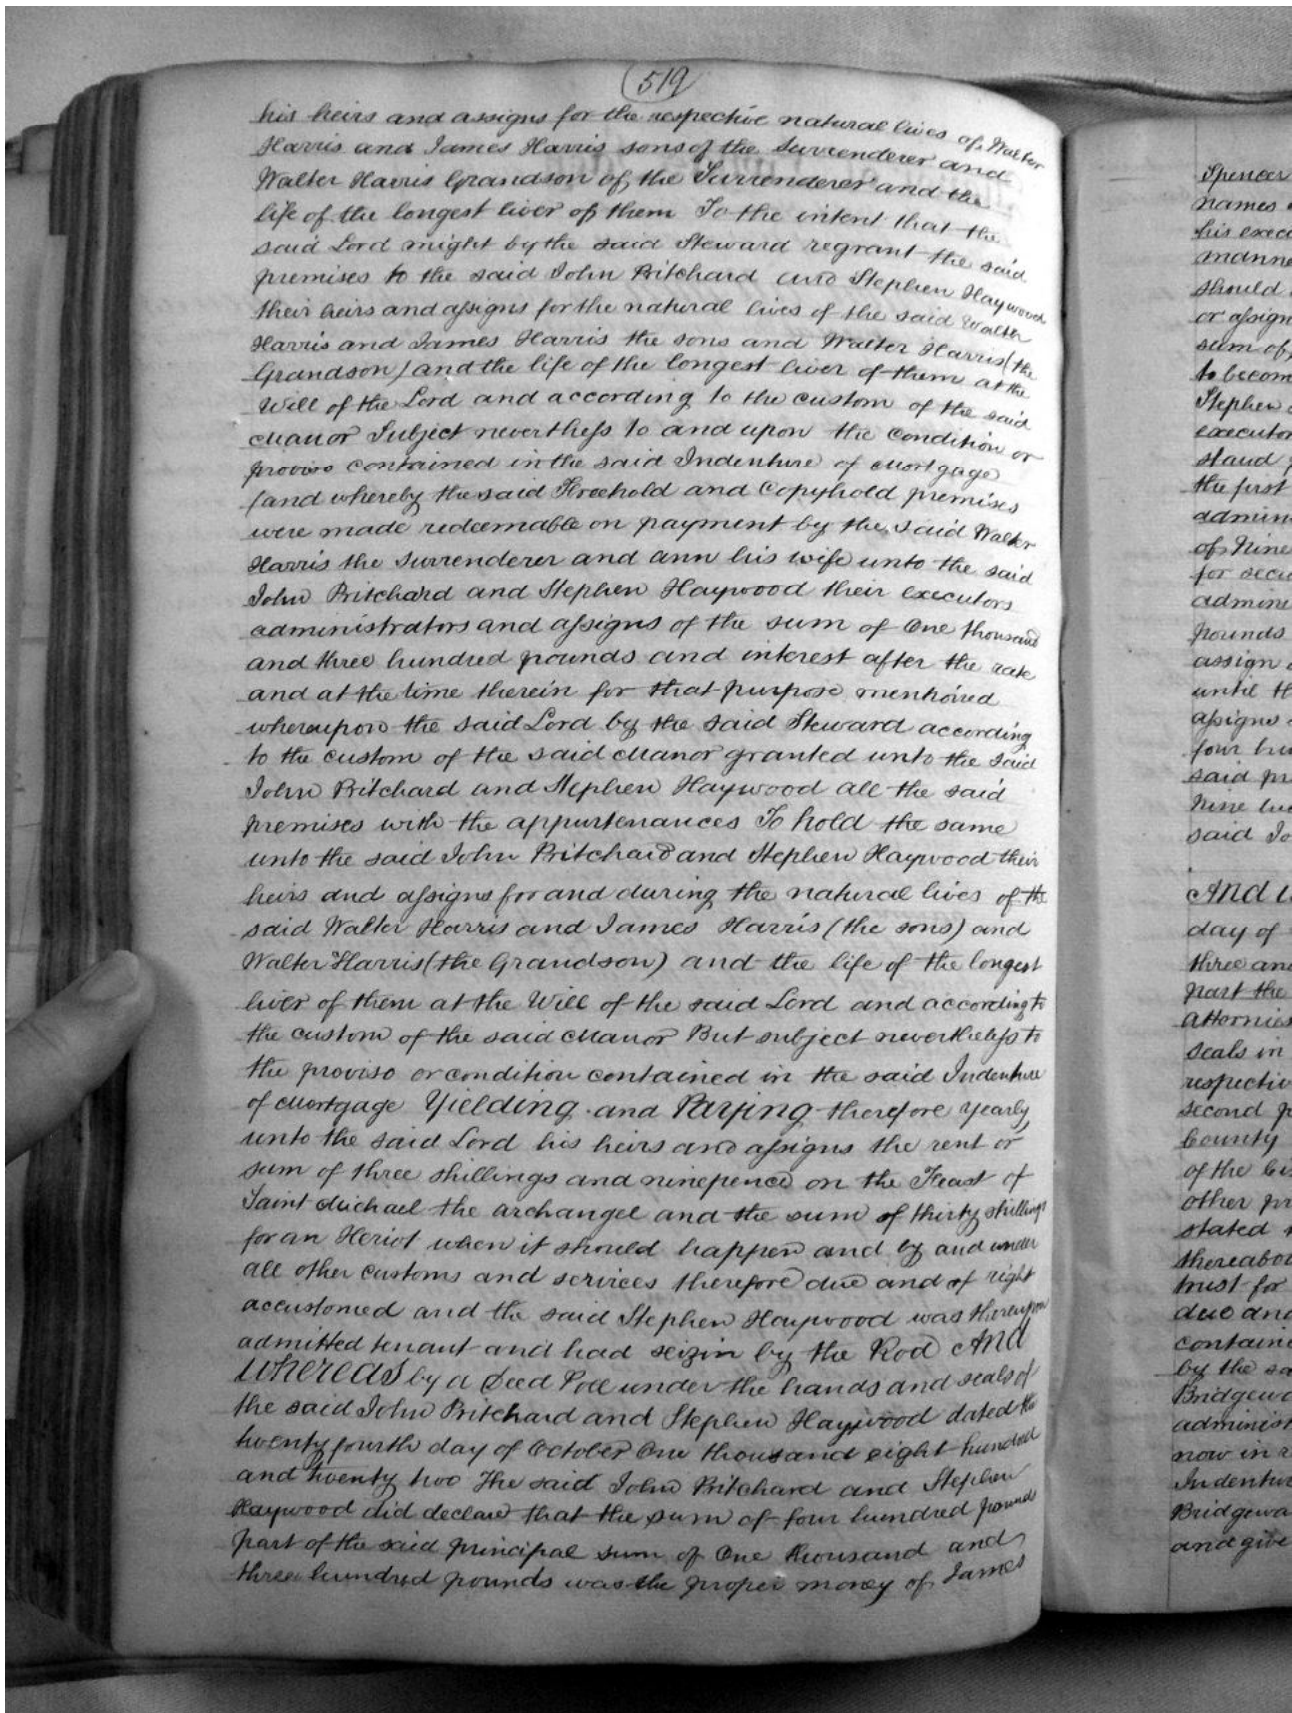 519
his heirs and assigns for the respective natural lives of Walter
Harris and James Harris sons of the Surrenderer and
Walter Harris Grandson of the Surrenderer and the
life of the longest liver of them To the intent that the
said Lord might by the said Steward regrant the said
premises to the said John Pritchard and Stephen Haywood
their heirs and assigns for the natural lives of the said Walter
Harris and James Harris the sons and Walter Harris (the
Grandson) and the life of the longest liver of them at the
Will of the Lord and according to the custom of the said
Manor Subject neverthess to and upon the condition or
proviso contained in the said Indenture of Mortgage
(and whereby the said Freehold and Copyhold premises
were made redeemable on payment by the said Walter
Harris the Surrenderer and ann his wife unto the said
John Pritchard and Stephen Haywood their executors
administrators and assigns of the sum of One thousand
and three hundred pounds and interest after the rate
and at the time therein for that purpose mentioned
whereupon the said Lord by the said Steward according
to the custom of the said Manor granted unto the said
John Pritchard and Stephen Haywood all the said
premises with the appurtenances To hold the same
unto the said John Pritchard and Stephen Haywood their
heirs and assigns for and during the natural lives of the
said Walter Harris and James Harris (the sons) and
Walter Harris (the Grandson) and the life of the longest
liver of them at the Will of the said Lord and according to
the custom of the said Manor But subject nevertheless to
the proviso or condition contained in the said Indenture
of Mortgage Yielding and Paying therefore yearly
unto the said Lord his heirs and assigns the rent or
sum of three shillings and ninepence on the Feast of
Saint Michael the archangel and the sum of thirty shillings
for an Heriot when it should happen and by and under
all other customs and services therefore due and of right
accustomed and the said Stephen Haywood was thereupon
admitted tenant and had seizin by the Rod And
Whereas by a Deed Poll under the hands and seals of
the said John Pritchard and Stephen Haywood dated the
twenty fourth day of October One thousand eight hundred
and twenty two The said John Pritchard and Stephen
Haywood did declare that the sum of four hundred pounds
part of the said principal sum of One thousand and
three hundred pounds was the proper money of James
Spencer
names
his exec
manne
should
or assign
sum of
to becom
Stephen
executor
stand
the first
admin
of Nine
for secu
admini
pounds
assign
until th
assigns
four hu
said pr
Nine hu
said Jo
And w
day of
three and
part the
attornies
seals in
respectiv
second p
County
of the
other pr
stated
thereabou
trust for
due and
containe
by the sa
Bridgewa
administ
now in
Indentur
Bridgewa
and give